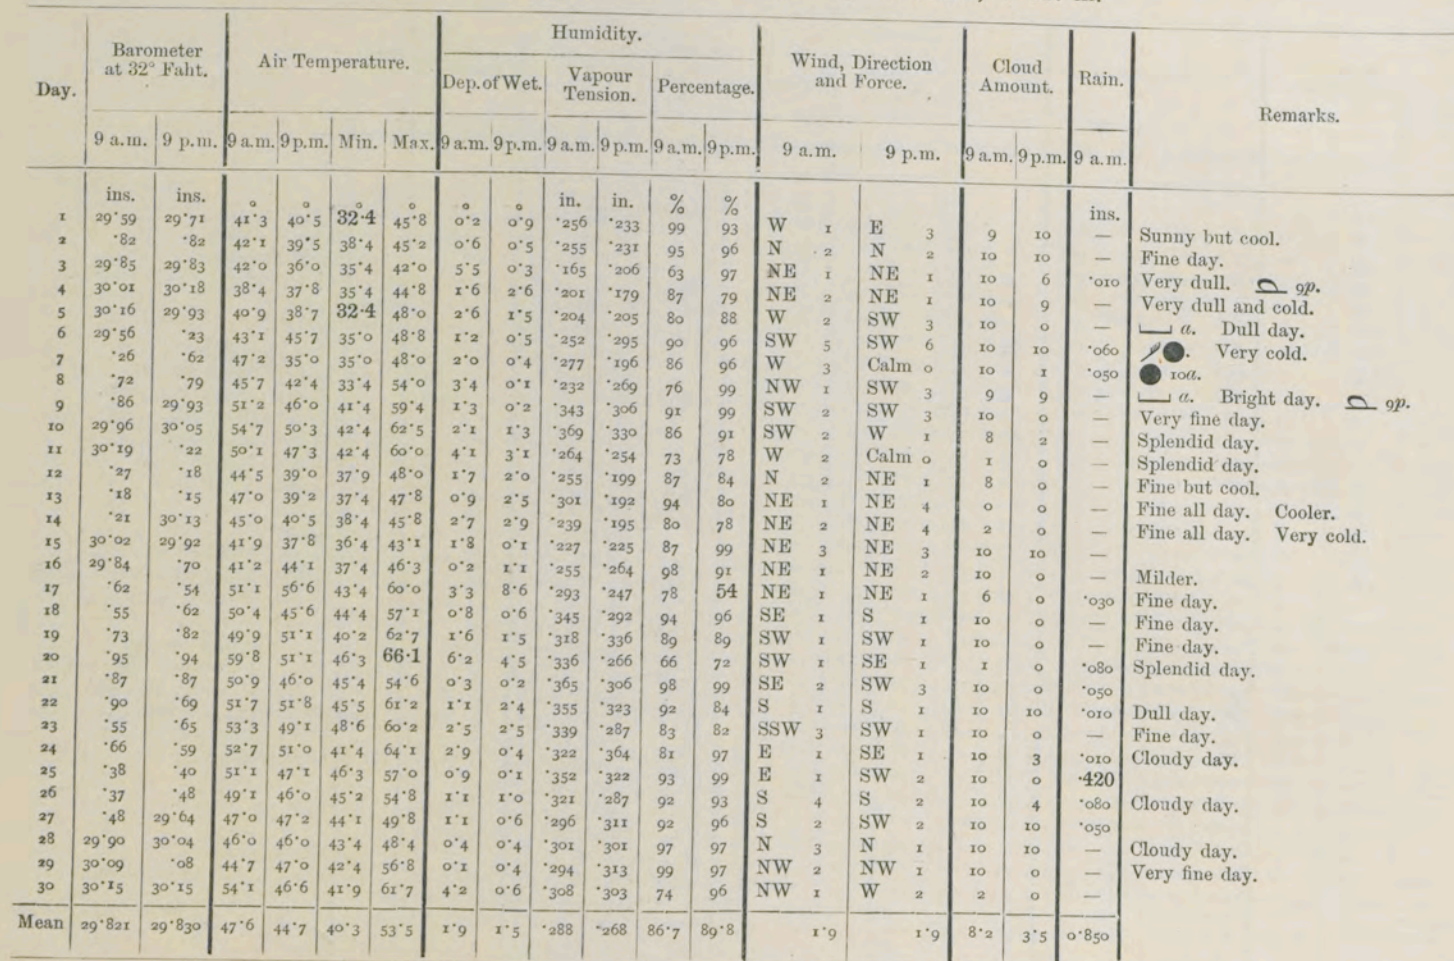 Humidity.
Barometer at 32° Faht. Air Temperature. Wind, Direction and Force. Cloud Amount. Rain.
Day. Dep. of Wet. Vapour Tension. Percentage. Remarks.
9 a.m. 9 p.m. 9 a.m. 9 p.m. Min. Max. 9 a.m. 9 p.m. 9 a.m. 9 p.m. 9 a.m. 9 p.m. 9 a.m. 9 p.m. 9 a.m. 9 p.m. 9 a.m.
ins. ins. ° ° ° ° ° ° in. in. % % ins.
1 29·59 29·71 41·3 40·5 32·4 45·8 0·2 0·9 ·256 ·233 99 93 W 1 E 3 9 10 — Sunny but cool.
2 ·82 ·82 42·1 39·5 38·4 45·2 0·6 0·5 ·255 ·231 95 96 N 2 N 2 10 10 — Fine day.
3 29·85 29·83 42·0 36·0 35·4 42·0 5·5 0·3 ·165 ·206 63 97 NE 1 NE 1 10 6 ·010 Very dull. 9p.
4 30·01 30·18 38·4 37·8 35·4 44·8 1·6 2·6 ·201 ·179 87 79 NE 2 NE 1 10 9 — Very dull and cold.
5 30·16 29·93 40·9 38·7 32·4 48·0 2·6 1·5 ·204 ·205 80 88 W 2 SW 3 10 0 — a. Dull day.
6 29·56 ·23 43·1 45·7 35·0 48·8 1·2 0·5 ·252 ·295 90 96 SW 5 SW 6 10 10 ·060 Very cold.
7 ·26 ·62 47·2 35·0 35·0 48·0 2·0 0·4 ·277 ·196 86 96 W 3 Calm 0 10 1 ·050 10a.
8 ·72 ·79 45·7 42·4 33·4 54·0 3·4 0·1 ·232 ·269 76 99 NW 1 SW 3 9 9 — a. Bright day. 9p.
9 ·86 29·93 51·2 46·0 41·4 59·4 1·3 0·2 ·343 ·306 91 99 SW 2 SW 3 10 0 — Very fine day.
10 29·96 30·05 54·7 50·3 42·4 62·5 2·1 1·3 ·369 ·330 86 91 SW 2 W 1 8 2 — Splendid day.
11 30·19 ·22 50·1 47·3 42·4 60·0 4·1 3·1 ·264 ·254 73 78 W 2 Calm 0 1 0 — Splendid day.
12 ·27 ·18 44·5 39·0 37·9 48·0 1·7 2·0 ·255 ·199 87 84 N 2 NE 1 8 0 — Fine but cool.
13 ·18 ·15 47·0 39·2 37·4 47·8 0·9 2·5 ·301 ·192 94 80 NE 1 NE 4 0 0 — Fine all day. Cooler.
14 ·21 30·13 45·0 40·5 38·4 45·8 2·7 2·9 ·239 ·195 80 78 NE 2 NE 4 2 0 — Fine all day. Very cold.
15 30·02 29·92 41·9 37·8 36·4 43·1 1·8 0·1 ·227 ·225 87 99 NE 3 NE 3 10 10 —
16 29·84 ·70 41·2 44·1 37·4 46·3 0·2 1·1 ·255 ·264 98 91 NE 1 NE 2 10 0 — Milder.
17 ·62 ·54 51·1 56·6 43·4 60·0 3·3 8·6 ·293 ·247 78 54 NE 1 NE 1 6 0 ·030 Fine day.
18 ·55 ·62 50·4 45·6 44·4 57·1 0·8 0·6 ·345 ·292 94 96 SE 1 S 1 10 0 — Fine day.
19 ·73 ·82 49·9 51·1 40·2 62·7 1·6 1·5 ·318 ·336 89 89 SW 1 SW 1 10 0 — Fine day.
20 ·95 ·94 59·8 51·1 46·3 66·1 6·2 4·5 ·336 ·266 66 72 SW 1 SE 1 1 0 ·080 Splendid day.
21 ·87 ·87 50·9 46·0 45·4 54·6 0·3 0·2 ·365 ·306 98 99 SE 2 SW 3 10 0 ·050
22 ·90 ·69 51·7 51·8 45·5 61·2 1·1 2·4 ·355 ·323 92 84 S 1 S 1 10 10 ·010 Dull day.
23 ·55 ·65 53·3 49·1 48·6 60·2 2·5 2·5 ·339 ·287 83 82 SSW 3 SW 1 10 0 — Fine day.
24 ·66 ·59 52·7 51·0 41·4 64·1 2·9 0·4 ·322 ·364 81 97 E 1 SE 1 10 3 ·010 Cloudy day.
25 ·38 ·40 51·1 47·1 46·3 57·0 0·9 0·1 ·352 ·322 93 99 E 1 SW 2 10 0 ·420
26 ·37 ·48 49·1 46·0 45·2 54·8 1·1 1·0 ·321 ·287 92 93 S 4 S 2 10 4 ·080 Cloudy day.
27 ·48 29·64 47·0 47·2 44·1 49·8 1·1 0·6 ·296 ·311 92 96 S 2 SW 2 10 10 ·050
28 29·90 30·04 46·0 46·0 43·4 48·4 0·4 0·4 ·301 ·301 97 97 N 3 N 1 10 10 — Cloudy day.
29 30·09 ·08 44·7 47·0 42·4 56·8 0·1 0·4 ·294 ·313 99 97 NW 2 NW 1 10 0 — Very fine day.
30 30·15 30·15 54·1 46·6 41·9 61·7 4·2 0·6 ·308 ·303 74 96 NW 1 W 2 2 0 —
Mean 29·821 29·830 47·6 44·7 40·3 53·5 1·9 1·5 ·288 ·268 86·7 89·8 1·9 1·9 8·2 3·5 0·850